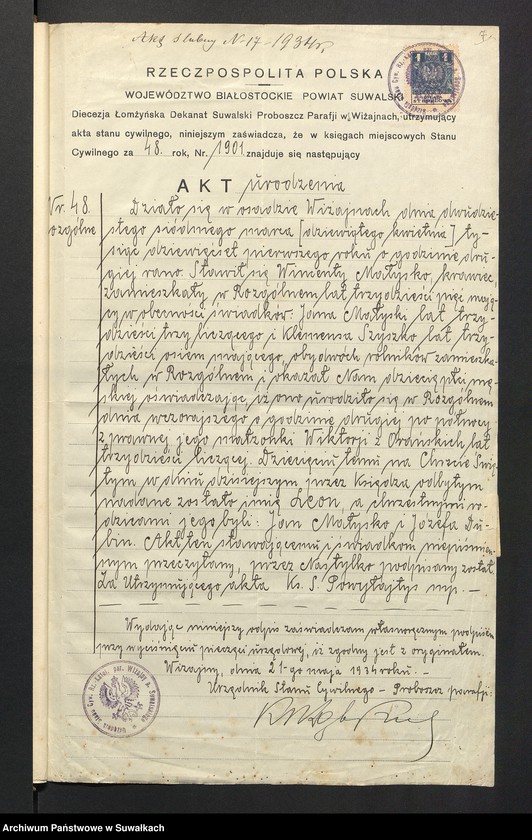 Akt ślubny Nr 17 – 1934 r.
RZECZPOSPOLITA POLSKA
WOJEWÓDZTWO BIAŁOSTOCKIE POWIAT SUWALSKI
Diecezja Łomżyńska Dekanat Suwalski Proboszcz Parafji w Wiżajnach, utrzymujący
akta stanu cywilnego, niniejszym zaświadcza, że w księgach miejscowych Stanu
Cywilnego za 48. rok, Nr. 1901 znajduje się następujący
AKT urodzenia
Nr. 48.
Rozgólne
Działo się w osadzie Wiżajnach dnia dwudzie-
stego siódmego marca [dziewiątego kwietnia] ty-
siąc dziewięćset pierwszego roku o godzinie dru-
giej rano. Stawił się Wincenty Matysko, krawiec,
zamieszkały w Rozgólnem lat trzydzieści pięć mają-
cy w obecności świadków: Jana Matyski lat trzy-
dzieści trzy liczącego i Klemensa Szyszko lat trzy-
dzieści osiem mającego, obydwóch rolników zamieszka-
łych w Rozgólnem i okazał Nam dziecię płci mę-
skiej oświadczając, iż ono urodziło się w Rozgólnem
dnia wczorajszego o godzinie drugiej po północy
z prawnej jego małżonki Wiktorji z Orańskich lat
trzydzieści liczącej. Dziecięciu temu na Chrzcie Świę-
tym w dniu dzisiejszym przez Księdza odbytym
nadane zostało imię Leon, a chrzestnymi ro-
dzicami jego byli: Jan Matysko i Józefa Du-
bin. Akt ten stawającemu i świadkom niepiśmien-
nym przeczytany, przez Nas tylko podpisany został.
Za Utrzymującego akta Ks. S. Powyłajtys mp. –
Wydając niniejszy odpis zaświadczam własnoręcznym podpisem
przy wyciśnięciu pieczęci urzędowej, iż zgodny jest z oryginałem.
Wiżajny, dnia 21-go maja 1934 roku. –
Urzędnik Stanu Cywilnego – Proboszcz parafji:
Archiwum Państwowe w Suwałkach